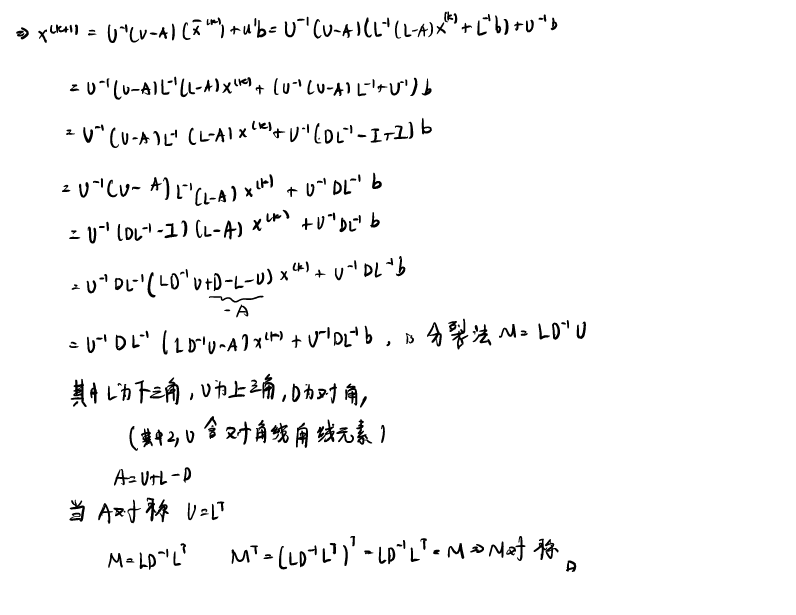 ⇒ x^(k+1) = U⁻¹(U-A)(x̄^(k)) + U⁻¹b = U⁻¹(U-A)(L⁻¹(L-A)x^(k) + L⁻¹b) + U⁻¹b
= U⁻¹(U-A)L⁻¹(L-A)x^(k) + (U⁻¹(U-A)L⁻¹+U⁻¹)b
= U⁻¹(U-A)L⁻¹(L-A)x^(k) + U⁻¹(DL⁻¹-I+I)b
= U⁻¹(U-A)L⁻¹(L-A)x^(k) + U⁻¹DL⁻¹b
= U⁻¹(DL⁻¹-I)(L-A)x^(k) + U⁻¹DL⁻¹b
= U⁻¹DL⁻¹(LD⁻¹U+D-L-U)x^(k) + U⁻¹DL⁻¹b
-A
= U⁻¹DL⁻¹(LD⁻¹U-A)x^(k) + U⁻¹DL⁻¹b, 分裂法 M=LD⁻¹U
其中L为下三角,U为上三角,D为对角,
(其中L,U含对角线角线元素)
A=U+L-D
当A对称 U=Lᵀ
M=LD⁻¹Lᵀ Mᵀ=(LD⁻¹Lᵀ)ᵀ=LD⁻¹Lᵀ=M⇒M对称 □